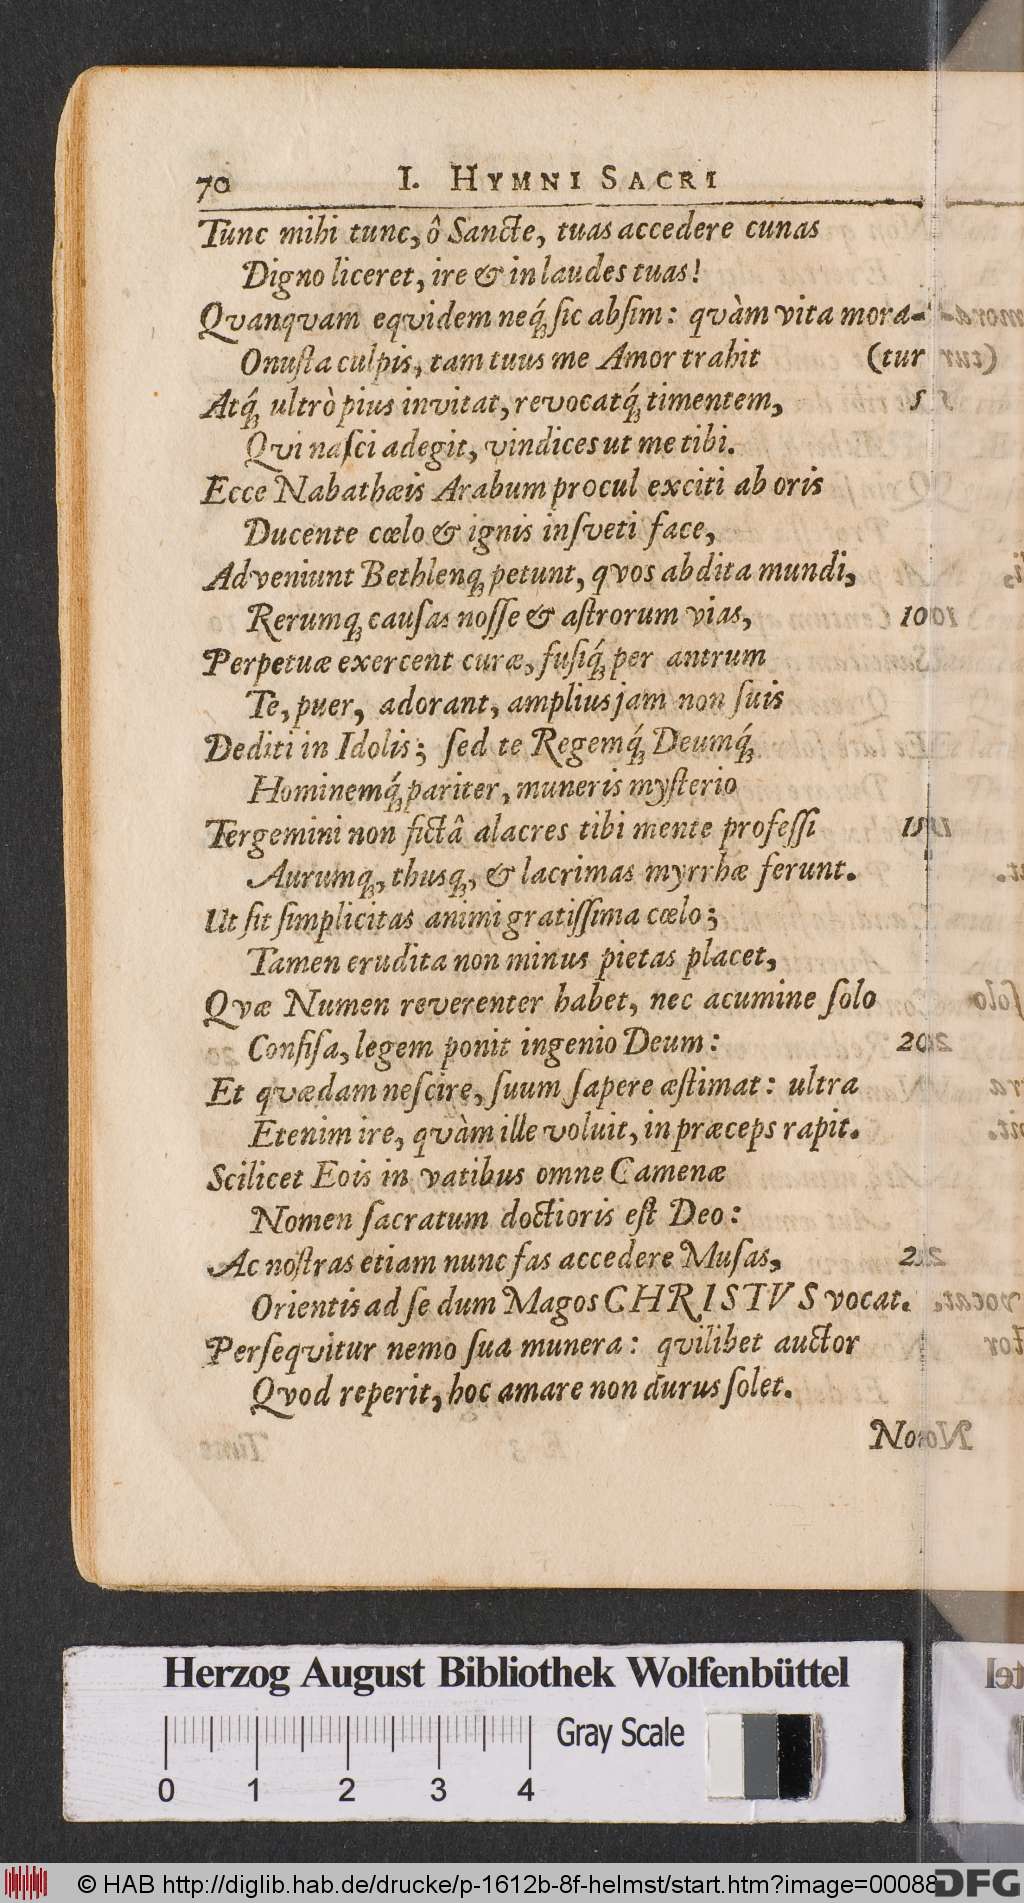 70 I. HYMNI SACRI
Tunc mihi tunc, ô Sancte, tuas accedere cunas
Digno liceret, ire & in laudes tuas!
Qvanqvam eqvidem neq́ꝫ sic absim: qvàm vita mora-
Onusta culpis, tam tuus me Amor trahit (tur
Atq́ꝫ ultrò pius invitat, revocatq́ꝫ timentem, 5
Qvi nasci adegit, vindices ut me tibi.
Ecce Nabathæis Arabum procul exciti ab oris
Ducente cœlo & ignis insveti face,
Adveniunt Bethlenqꝫ petunt, qvos abdita mundi,
Rerumqꝫ causas nosse & astrorum vias, 10
Perpetuæ exercent curæ, fusiq́ꝫ per antrum
Te, puer, adorant, amplius jam non suis
Dediti in Idolis; sed te Regemq́ꝫ Deumq́ꝫ
Hominemq́ꝫ pariter, muneris mysterio
Tergemini non fictâ alacres tibi mente professi 15
Aurumqꝫ, thusqꝫ, & lacrimas myrrhæ ferunt.
Ut sit simplicitas animi gratissima cœlo;
Tamen erudita non minus pietas placet,
Qvæ Numen reverenter habet, nec acumine solo
Confisa, legem ponit ingenio Deum: 20
Et qvædam nescire, suum sapere æstimat: ultra
Etenim ire, qvàm ille voluit, in præceps rapit.
Scilicet Eois in vatibus omne Camenæ
Nomen sacratum doctioris est Deo:
Ac nostras etiam nunc fas accedere Musas, 2
Orientis ad se dum Magos CHRISTVS vocat.
Persequitur nemo sua munera: qvilibet auctor
Qvod reperit, hoc amare non durus solet.
No
Herzog August Bibliothek Wolfenbüttel
Gray Scale
0 1 2 3 4
© HAB http://diglib.hab.de/drucke/p-1612b-8f-helmst/start.htm?image=00088
DFG